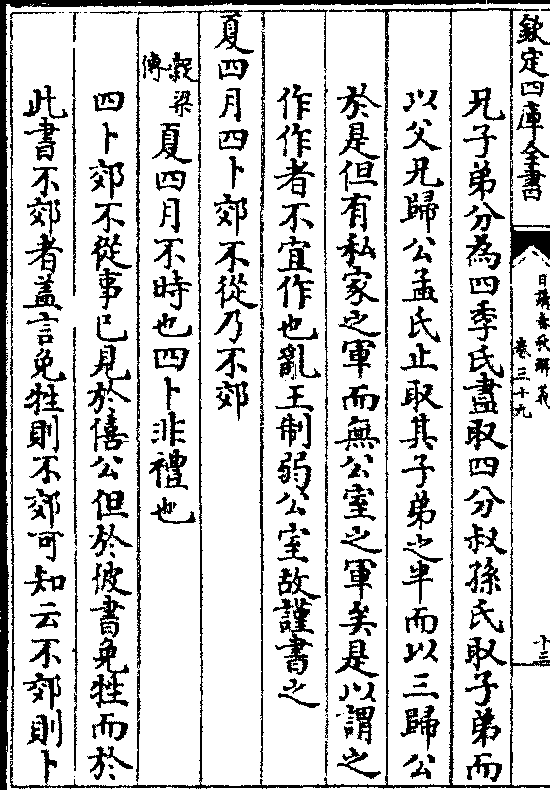 欽定四庫全書
日講春秋解義
卷三十九
十三
兄子弟分為四季氏盡取四分叔孫氏取子弟而
以父兄歸公孟氏止取其子弟之半而以三歸公
於是但有私家之軍而無公室之軍矣是以謂之
作作者不宜作也亂王制弱公室故謹書之
夏四月四卜郊不從乃不郊
穀梁傳夏四月不時也四卜非禮也
四卜郊不從事已見於僖公但於彼書免牲而於
此書不郊者蓋言免牲則不郊可知云不郊則卜